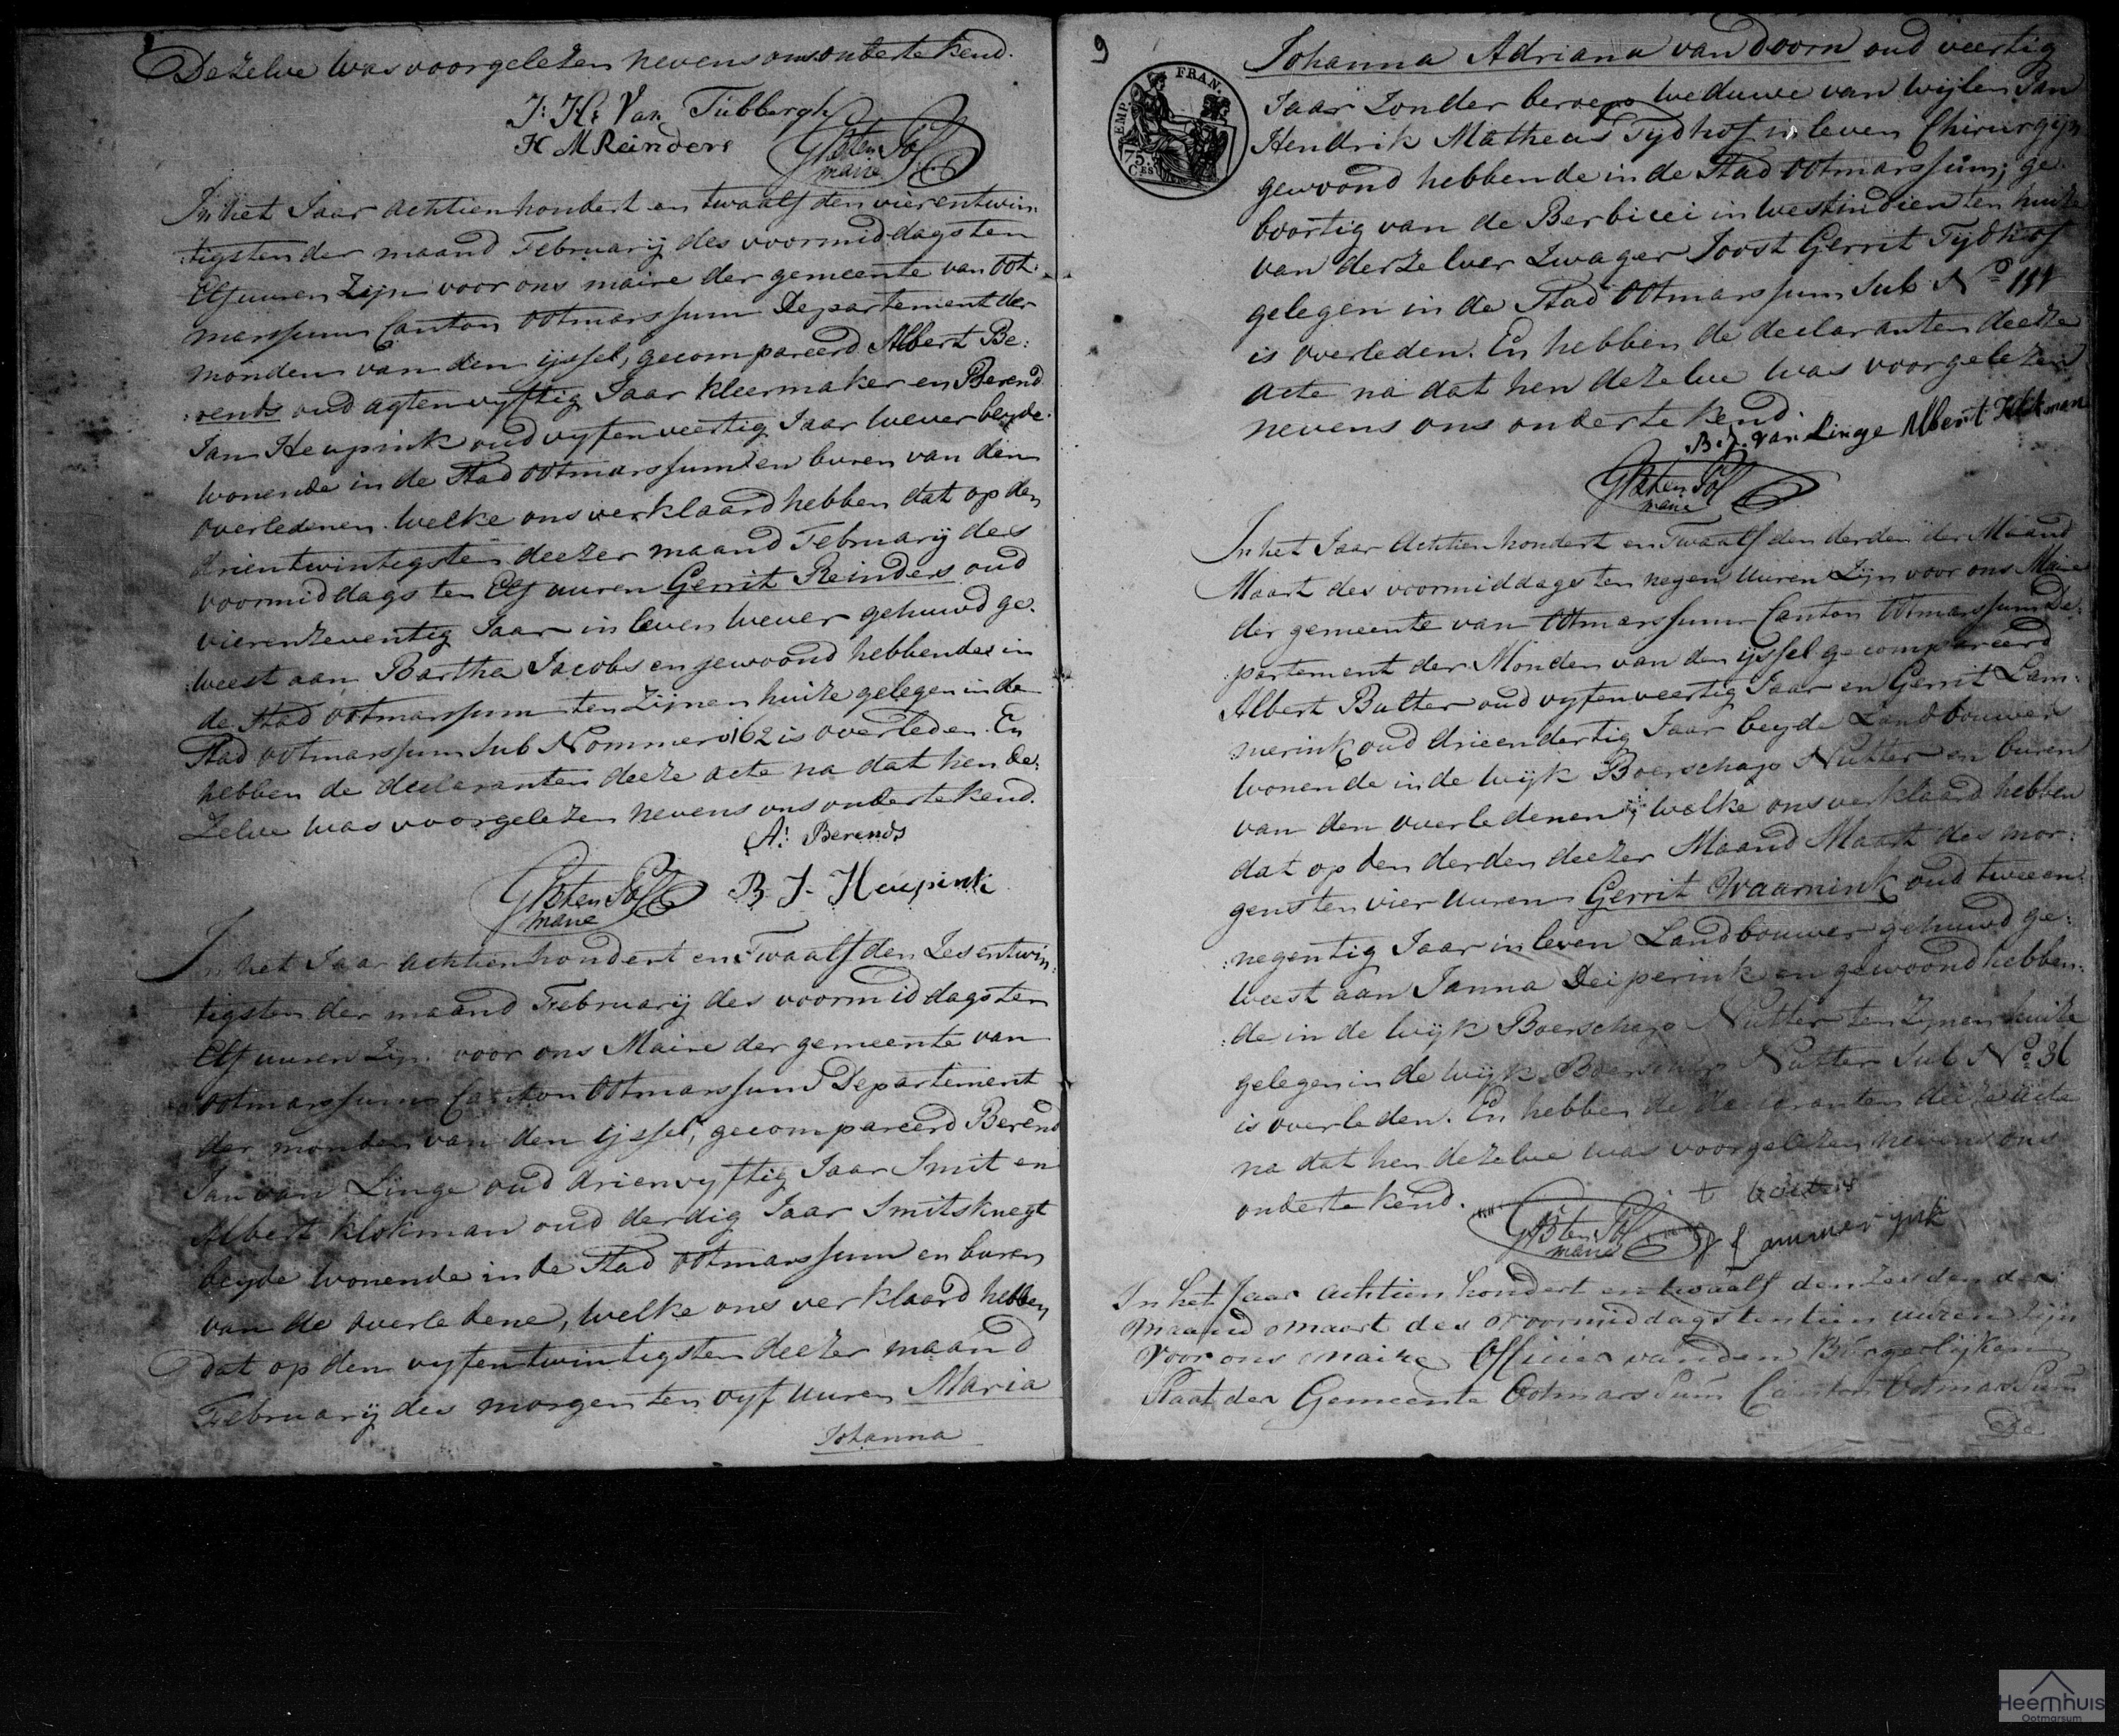 Dezelve was voorgelezen nevens ons ondertekend.
J: H: Van Tubbergh
H M Reinders
G B ten Pol
maire
In het Jaar achtienhondert en twaalf den vierentwin:
:tigsten der maand Februarij des voormiddags ten
Elf uuren Zijn voor ons maire der gemeente van Oot:
marssum Canton Ootmarssum Departement der
monden van den ijssel, gecompareerd Albert Be:
:rends oud agtenvyftig Jaar kleermaker en Berend
Jan Heupink oud vyfenveertig Jaar wever beyde
wonende in de Stad Ootmarssum en buren van den
overledenen. welke ons verklaard hebben dat op den
drientwintigsten deezer maand Februarij des
voormiddags ten Elf uuren Gerrit Reinders oud
vierenzeventig Jaar in leven wever gehuwd ge:
:weest aan Bartha Jacobs en gewoond hebbende in
de Stad Ootmarssum ten Zijnen huize gelegen in de
Stad Ootmarssum Sub Nommero 162 is overleden. En
hebben de declaranten deeze acte na dat hen de:
Zelve was voorgelezen nevens ons ondertekend.
A: Berends
G B ten Pol
maire
B. J. Heupink
In het Jaar achtienhondert en Twaalf den Zesentwin:
tigsten der maand Februarij des voormiddags ten
Elf uuren Zijn voor ons Maire der gemeente van
Ootmarssum Canton Ootmarssum Departement
der monden van den ijssel, gecompareerd Berend
Jan van Linge oud drienvyftig Jaar Smit en
Albert Klokman oud derdig Jaar Smitsknegt
beyde wonende in de Stad Ootmarssum en buren
van de overledene, welke ons verklaard hebben
dat op den vyfentwintigsten deezer maand
Februarij des morgens ten vyf uuren Maria
Johanna
9
EMP. FRAN.
75.
CES
Johanna Adriana van Doorn oud veertig
Jaar Zonder beroep weduwe van wijlen Jan
Hendrik Matheas Tydhof in leven Chirurgijn
gewoond hebbende in de Stad Ootmarssum; ge:
boortig van de Berbicei in westindien ten huize
van derzelver Zwager Joost Gerrit Tydhof
gelegen in de Stad Ootmarssum Sub No
is overleden. En hebben de declaranten deeze
acte na dat hen dezelve was voorgelezen
nevens ons ondertekend.
B. J. van Linge Albert Klokman
G B ten Pol
maire
In het Jaar Achtienhondert en Twaalf den derden der Maand
Maart des voormiddags ten negen Uuren Zijn voor ons Maire
der gemeente van Ootmarssum Canton Ootmarssum De:
:partement der Monden van den ijssel gecompareerd
Albert Bulter oud vyfenveertig Jaar en Gerrit Lam:
:merink oud drieendertig Jaar beyde Landbouwers
wonende in de wijk Boerschap Nutter en buren
van den overledenen; welke ons verklaard hebben
dat op den derden deezer Maand Maart des mor:
gens ten vier uuren Gerrit Waarnink oud tweeen:
:negentig Jaar in leven Landbouwer gehuwd ge:
weest aan Janna Deiperink en gewoond hebben:
:de in de wijk Boerschap Nutter ten Zijnen huize
gelegen in de wijk Boerschap Nutter Sub No 36
is overleden. En hebben de declaranten deeze acte
na dat hen dezelve was voorgelezen nevens ons
ondertekend.
G B ten Pol
maire
G Lammerynk
In het Jaar achtien hondert en twaalf den Zesden der
Maand Maart des Voormiddags ten tien uuren zijn
Voor ons maire Officier van den Burgerlijken
Staat der Gemeente Ootmarssum Canton Ootmarssum
De
Heemhuis
Ootmarsum